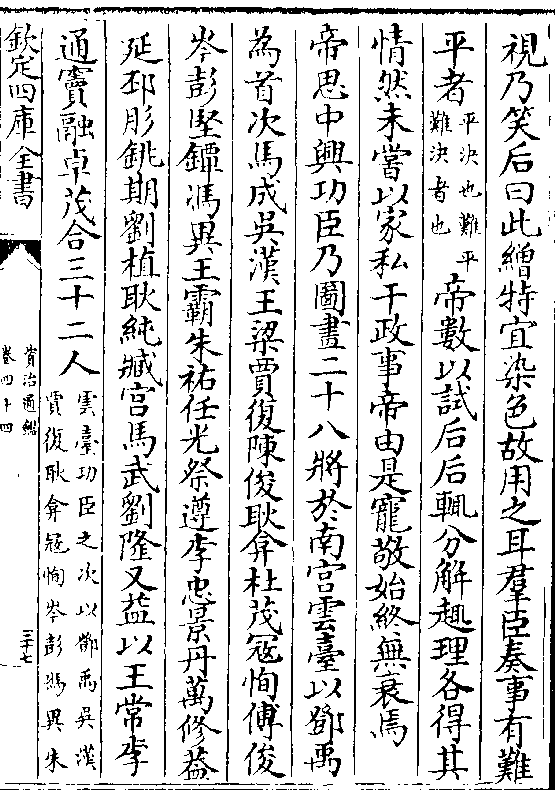 視乃笑后曰此繒特宜染色故用之耳羣臣奏事有難
平者平決也難平難決者也帝數以試后后輒分解趣理各得其
情然未嘗以家私干政事帝由是寵敬始終無衰焉
帝思中興功臣乃圖畫二十八將於南宮雲臺以鄧禹
為首次馬成吳漢王梁賈復陳俊耿弇杜茂寇恂傅俊
岑彭堅鐔馮異王霸朱祐任光祭遵李忠景丹萬修蓋
延邳彤銚期劉植耿純臧宮馬武劉隆又益以王常李
通竇融卓茂合三十二人雲臺功臣之次以鄧禹吳漢賈復耿弇寇恂岑彭馮異朱
欽定四庫全書
資治通鑑
卷四十四
三十七